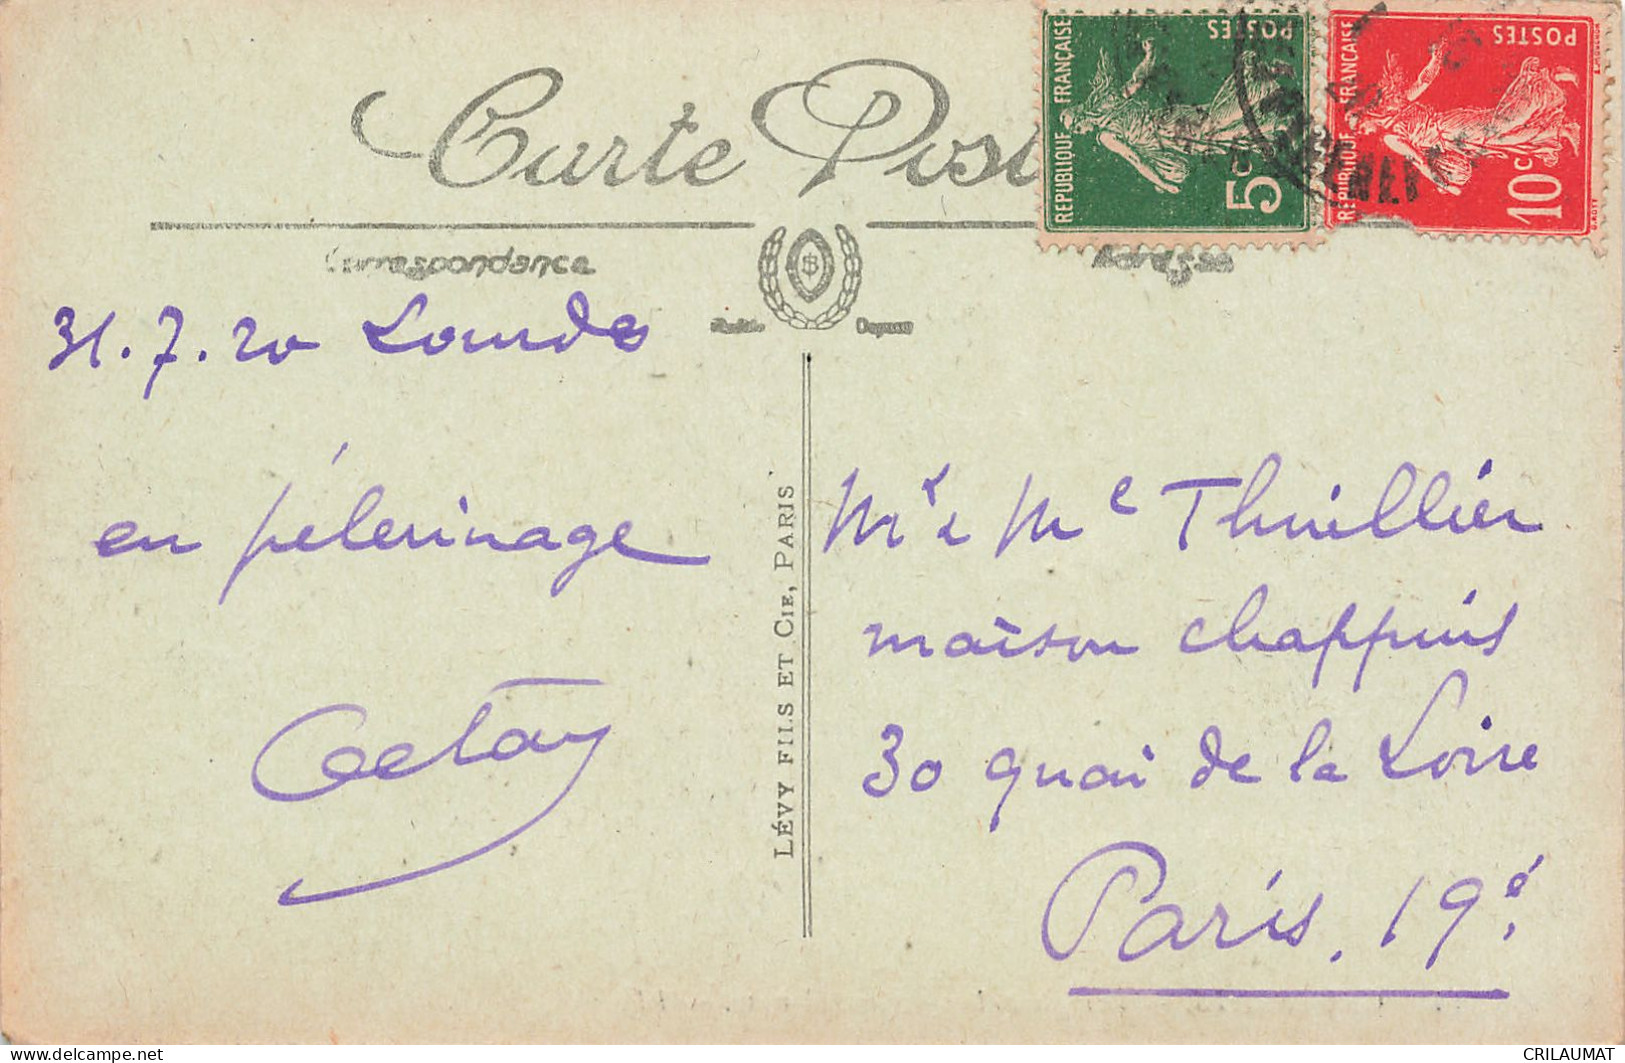 Carte Post
Correspondance
Adresse
RÉPUBLIQUE FRANÇAISE
POSTES
5c
RÉPUBLIQUE FRANÇAISE
POSTES
10c
31.7.20 Lourdes
en pélerinage
LÉVY FILS ET CIE, PARIS
Mr & Me Thuillier
maison chappuis
30 quai de la Loire
Paris. 19e
delcampe.net
CRILAUMAT